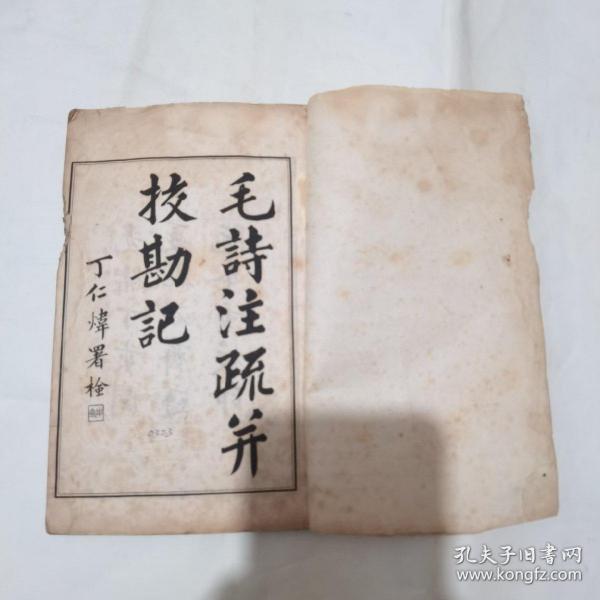 毛詩注疏并
挍勘記
丁仁煒署檢
0323
孔夫子旧书网
www.kongfz.com